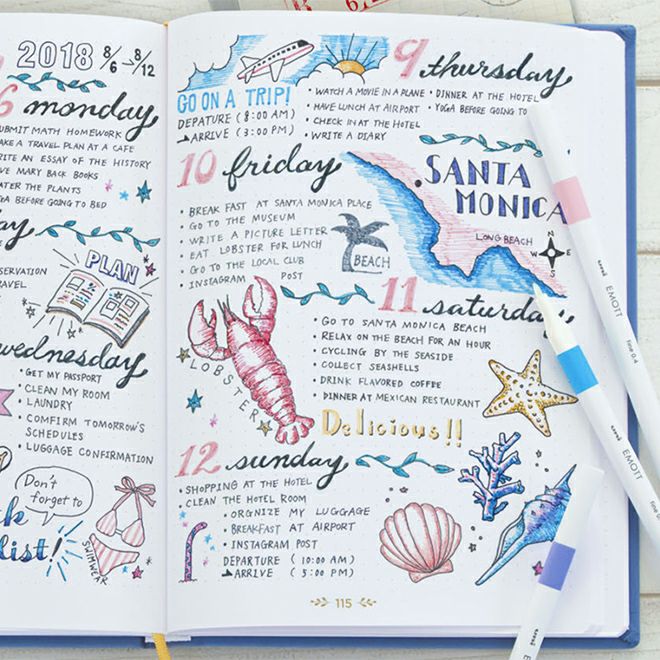 2018 8/6 → 8/12
6 monday
SUBMIT MATH HOMEWORK
MAKE A TRAVEL PLAN AT A CAFE
WRITE AN ESSAY OF THE HISTORY
MARY BACK BOOKS
WATER THE PLANTS
YOGA BEFORE GOING TO BED
PLAN
wednesday
• GET MY PASSPORT
• CLEAN MY ROOM
• LAUNDRY
• COMFIRM TOMORROW'S
SCHEDULES
• LUGGAGE CONFIRMATION
Don't
forget to
list!
SWIMWEAR
9 thursday
GO ON A TRIP!
DEPATURE (8:00 AM)
ARRIVE (3:00 PM)
• WATCH A MOVIE IN A PLANE
• HAVE LUNCH AT AIRPORT
• CHECK IN AT THE HOTEL
• WRITE A DIARY
• DINNER AT THE HOTEL
YOGA BEFORE GOING TO
10 friday
• BREAK FAST AT SANTA MONICA PLACE
• GO TO THE MUSEUM
• WRITE A PICTURE LETTER
• EAT LOBSTER FOR LUNCH
• GO TO THE LOCAL CLUB
• INSTAGRAM POST
BEACH
SANTA
MONICA
LONG BEACH
N
W E
S
LOBSTER
11 saturday
• GO TO SANTA MONICA BEACH
• RELAX ON THE BEACH FOR AN HOUR
• CYCLING BY THE SEASIDE
• COLLECT SEASHELLS
• DRINK FLAVORED COFFEE
• DINNER AT MEXICAN RESTAURANT
Delicious!!
12 sunday
• SHOPPING AT THE HOTEL
• CLEAN THE HOTEL ROOM
• ORGNIZE MY LUGGAGE
• BREAKFAST AT AIRPORT
• INSTAGRAM POST
DEPARTURE (10:00 AM)
ARRIVE (5:00 PM)
115
uni EMOTT Fine 0.4
uni EMOTT Fine